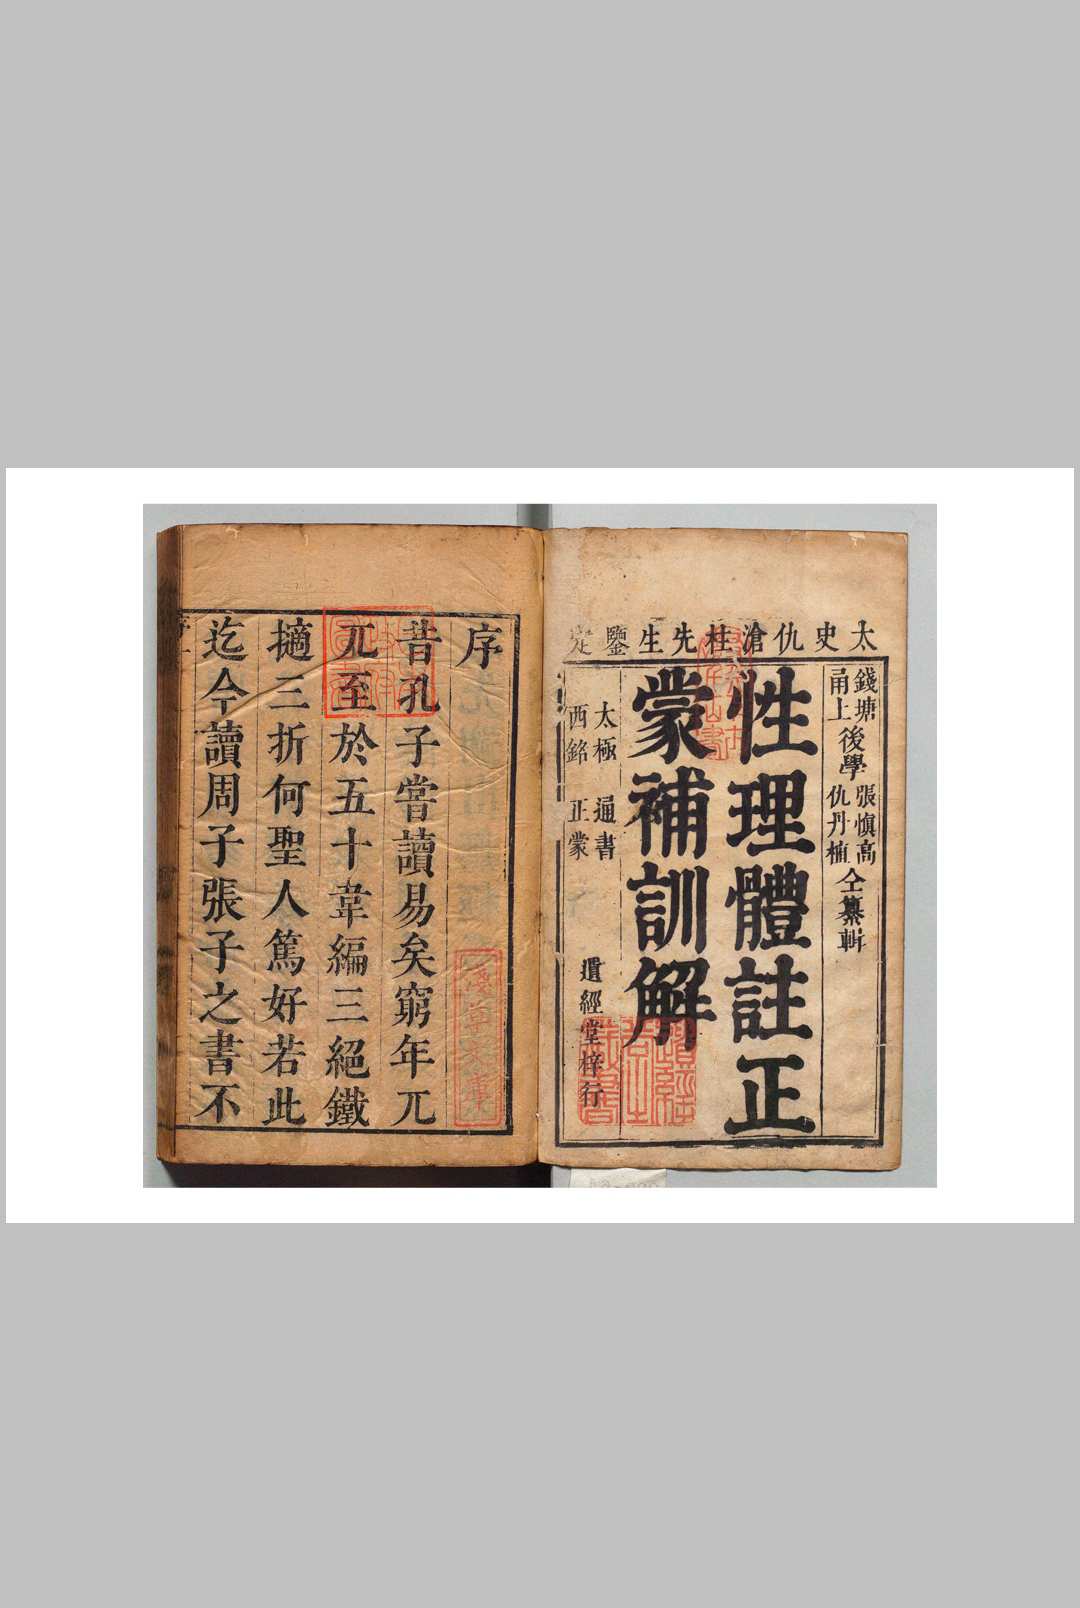 太史仇滄柱先生鑒定
錢塘
甬上
後學
張慎高
仇丹植
仝纂輯
性理體註正
蒙補訓解
太極 通書
西銘 正蒙
遺經堂梓行
序
昔孔子嘗讀易矣窮年兀
兀至於五十韋編三絕鐵
擿三折何聖人篤好若此
迄今讀周子張子之書不